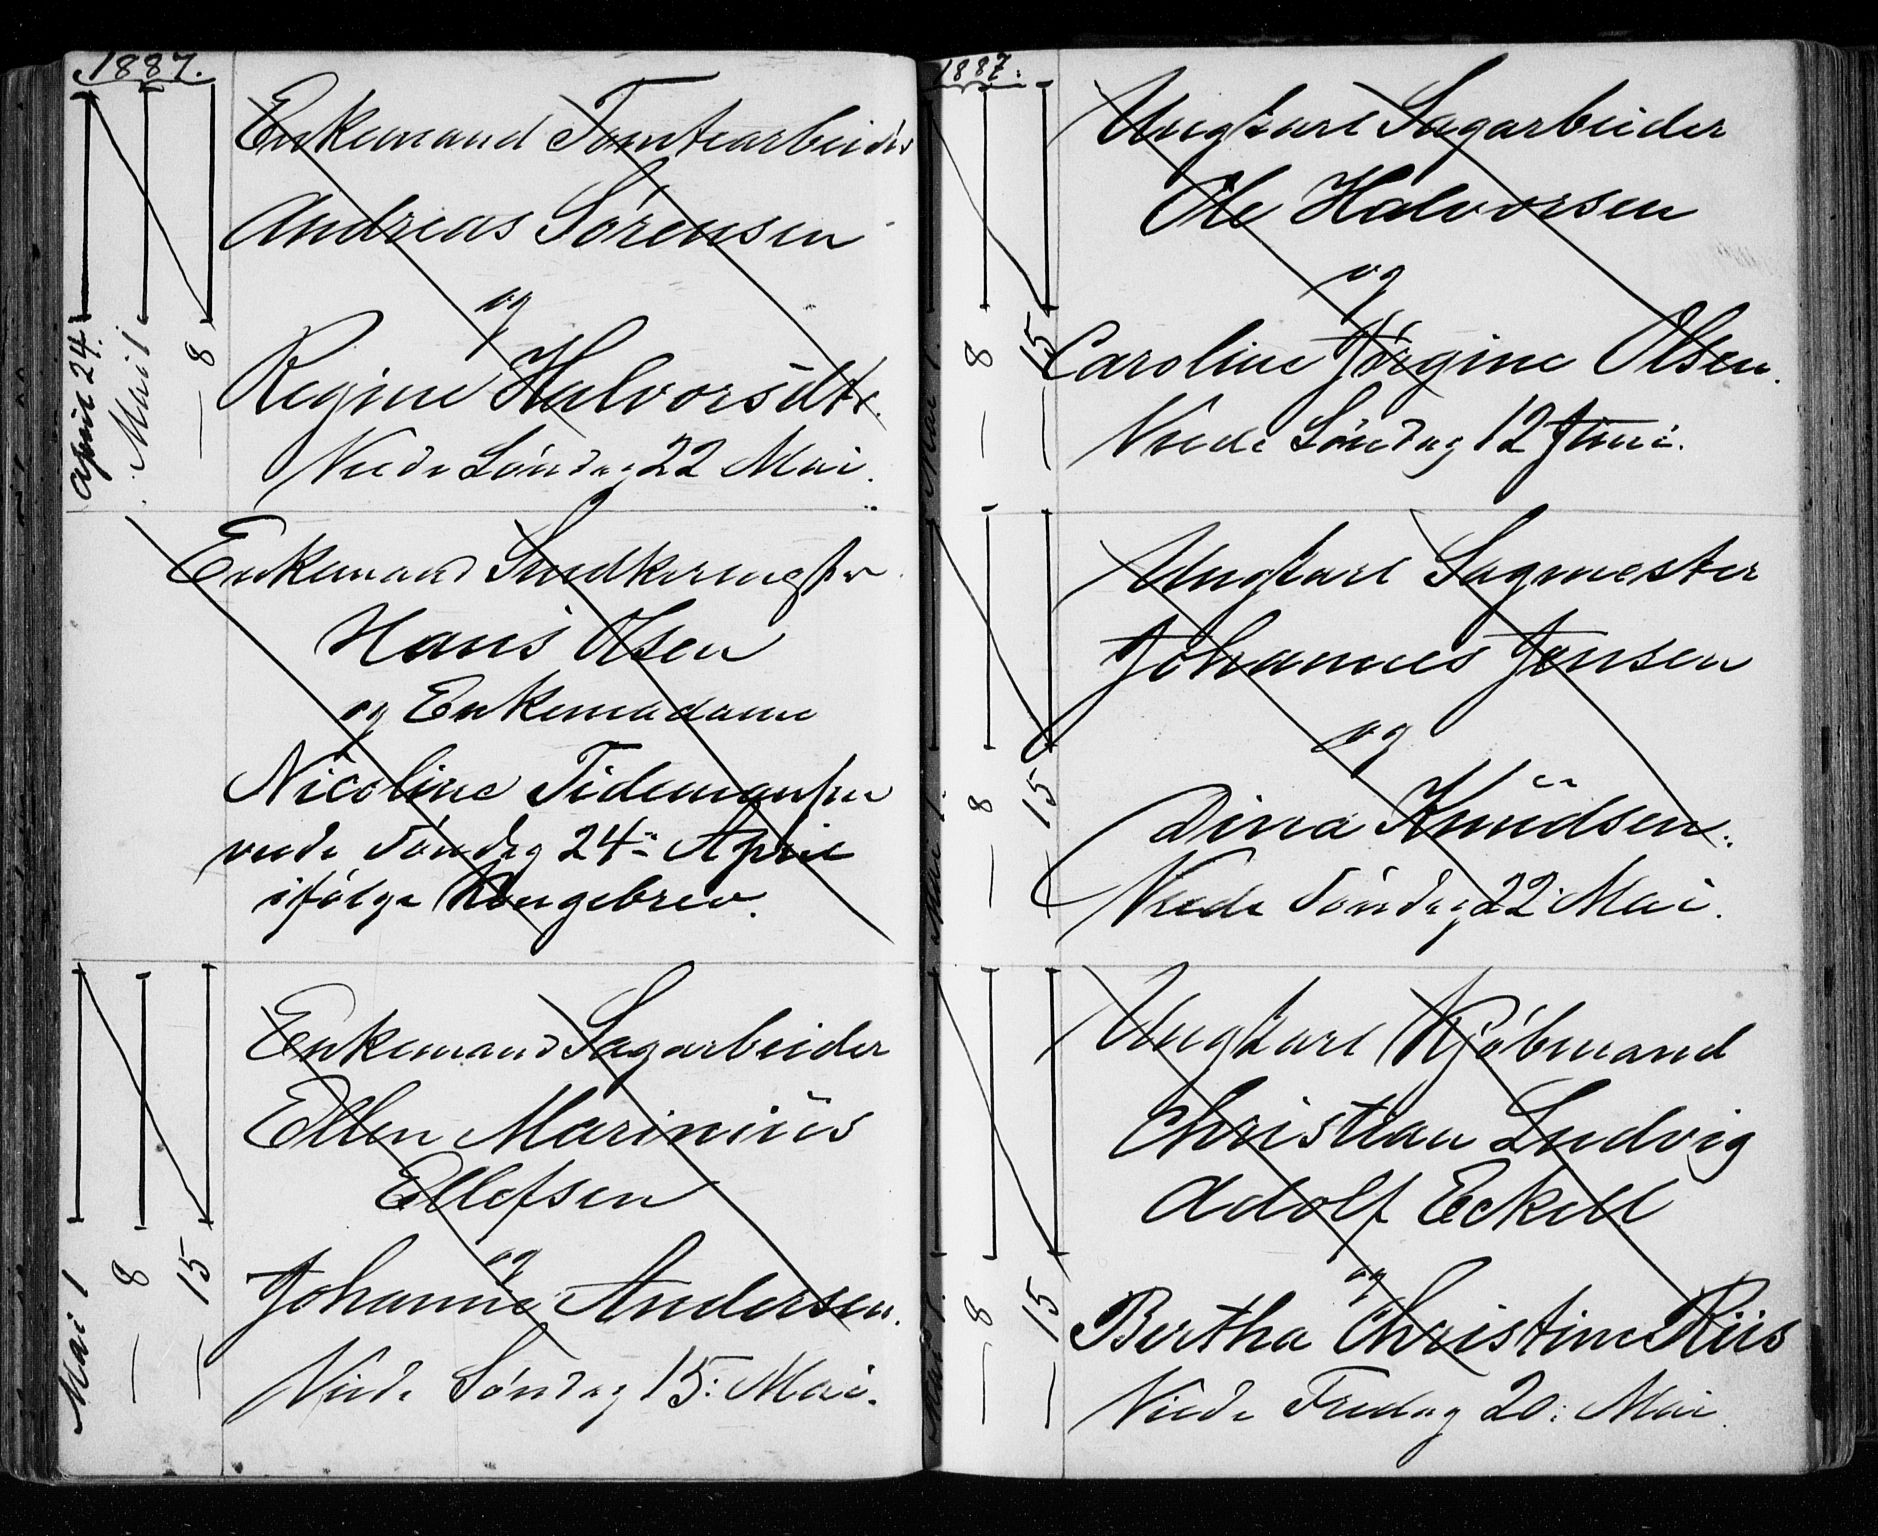 1887.
April 24.
Mai 1
— 8
Enkemand Tomtearbeider
Andreas Sørensen
og
Regine Halvorsdtr.
Viede Søndag 22 Mai.
Enkemand
Hans Olsen
og Enkemadame
Nicoline Tidemansen
viede Søndag 24de April
ifølge Kongebrev.
Mai 1
— 8
— 15
Enkemand Sagarbeider
Ellen Marinius
Ellefsen
og
Johanne Andersen.
Viede Søndag 15: Mai.
1887.
Mai 1.
— 8
— 15
Ungkarl Sagarbeider
Ole Halvorsen
og
Caroline Jørgine Olsen.
Viede Søndag 12 Juni.
Mai 1.
— 8
— 15
Ungkarl Sagmester
Johannes Jonsen
og
Dina Knudsen.
Viede Søndag 22 Mai.
Mai 1.
— 8
— 15
Ungkarl Kjøbmand
Christian Ludvig
Adolf Eckell
og
Bertha Christine Riis
Viede Fredag 20: Mai.